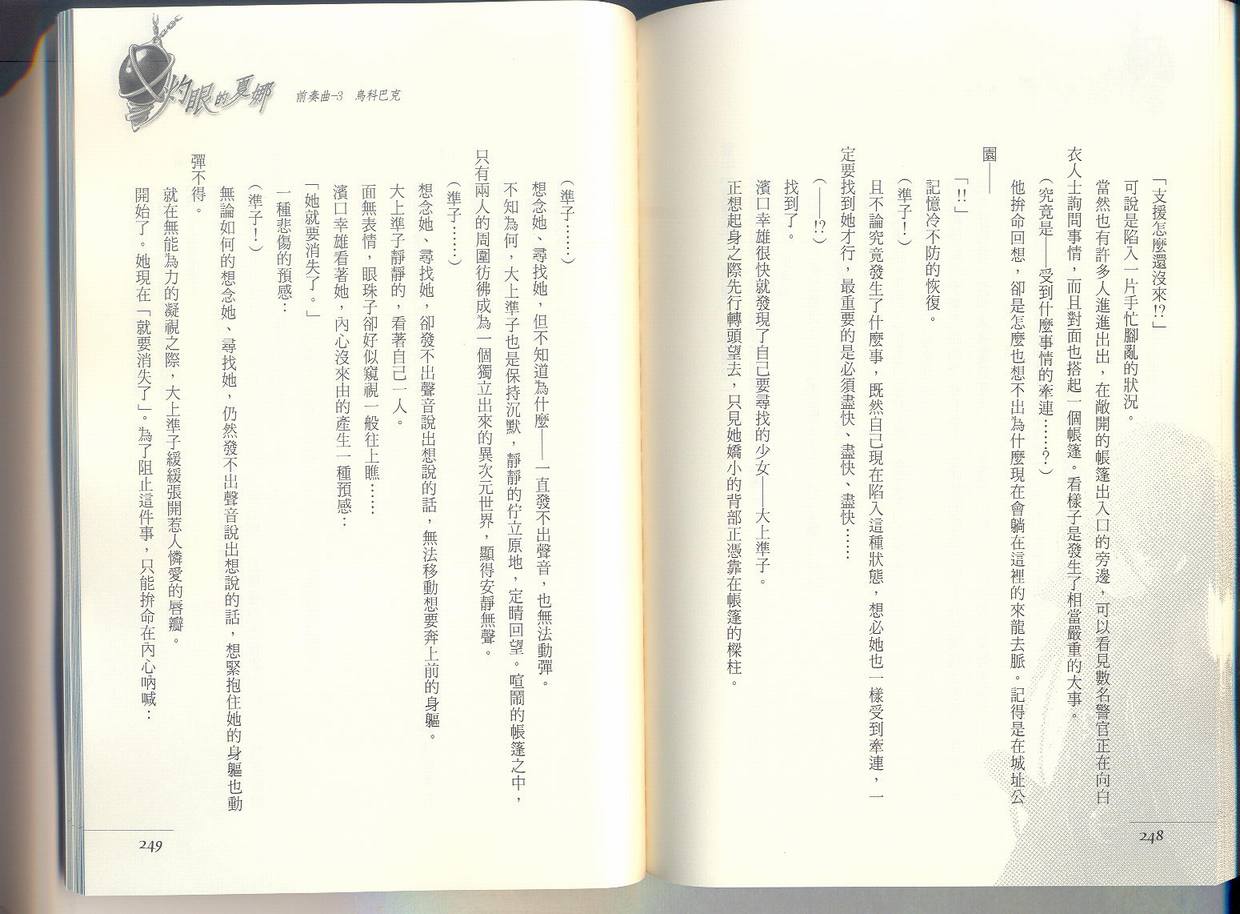 「支援怎麼還沒來!?」
可說是陷入一片手忙腳亂的狀況。
當然也有許多人進進出出，在敞開的帳篷出入口的旁邊，可以看見數名警官正在向白
衣人士詢問事情，而且對面也搭起一個帳篷。看樣子是發生了相當嚴重的大事。
（究竟是——受到什麼事情的牽連……？）
他拚命回想，卻是怎麼也想不出為什麼現在會躺在這裡的來龍去脈。記得是在城址公
園——
「!!」
記憶冷不防的恢復。
（準子！）
且不論究竟發生了什麼事，既然自己現在陷入這種狀態，想必她也一樣受到牽連，一
定要找到她才行，最重要的是必須盡快、盡快、盡快……
（——!?）
找到了。
濱口幸雄很快就發現了自己要尋找的少女——大上準子。
正想起身之際先行轉頭望去，只見她嬌小的背部正憑靠在帳篷的樑柱。
248
灼眼的夏娜
前奏曲-3　烏科巴克
（準子……）
想念她、尋找她，但不知道為什麼——一直發不出聲音，也無法動彈。
不知為何，大上準子也是保持沉默，靜靜的佇立原地，定睛回望。喧鬧的帳篷之中，
只有兩人的周圍彷彿成為一個獨立出來的異次元世界，顯得安靜無聲。
（準子……）
想念她、尋找她，卻發不出聲音說出想說的話，無法移動想要奔上前的身軀。
大上準子靜靜的，看著自己一人。
面無表情，眼珠子卻好似窺視一般往上瞧……
濱口幸雄看著她，內心沒來由的產生一種預感：
「她就要消失了。」
一種悲傷的預感：
（準子！）
無論如何的想念她、尋找她，仍然發不出聲音說出想說的話，想緊抱住她的身軀也動
彈不得。
就在無能為力的凝視之際，大上準子緩緩張開惹人憐愛的唇瓣。
開始了。她現在「就要消失了」。為了阻止這件事，只能拚命在內心吶喊：
249